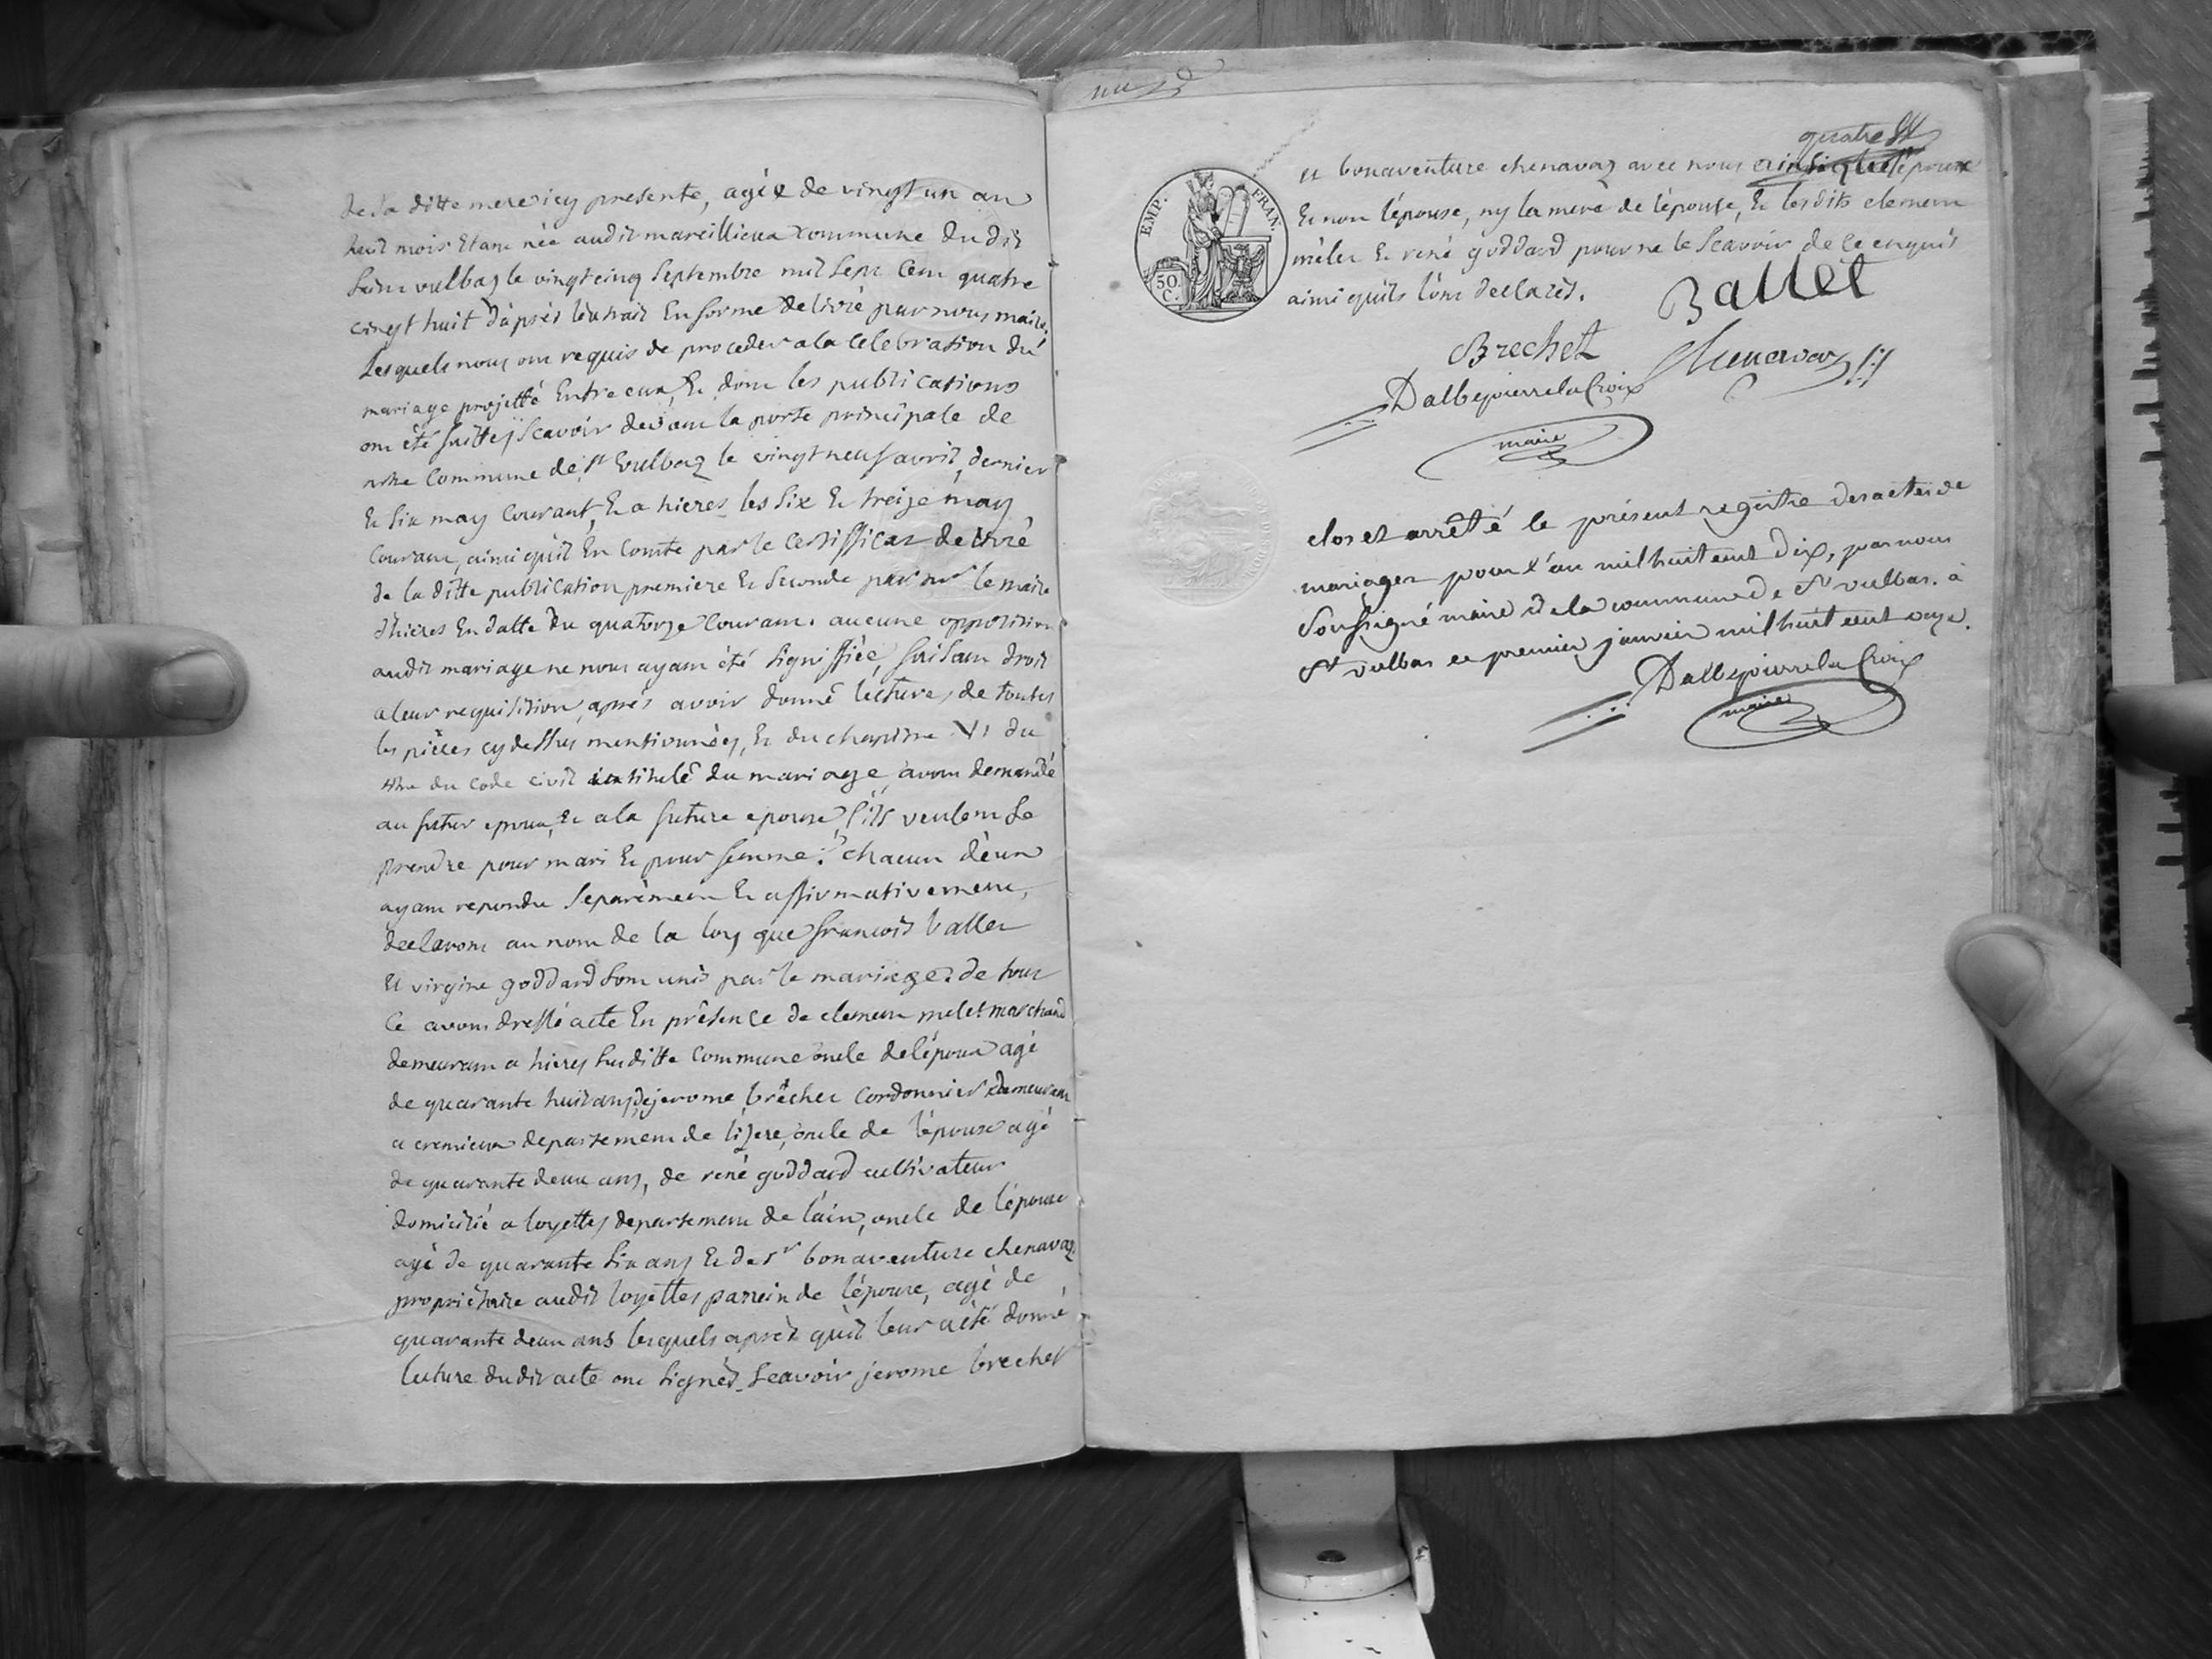 de sa ditte mere icy presente, agée de vingt un an
huit mois Etant née audit mareillieux commune du dit
saint vulbaz le vingt cinq septembre mil sept cent quatre
vingt huit d'après l'extrait En forme delivré par nous maire.
Lesquels nous ont requis de proceder a la celebration du
mariage projetté Entre eux, Et dont les publications
ont été faittes, scavoir devant la porte principale de
notre commune de St vulbaz le vingt neuf avril dernier
Et six may courant, Et a hieres les six Et treize may
courant, ainsi qu'il En conste par le certifficat delivré
de la ditte publication premiere Et seconde par mr le maire
d'hieres En datte du quatorze courant. aucune opposition
audit mariage ne nous ayant été signiffiée, faisant droit
a leur requisition, après avoir donné lecture, de toutes
les pièces cy dessus mentionnées, Et du chapitre VI du
titre du code civil intitulé du mariage, avons demandé
au futur epoux, Et a la future epouse, s'ils veulent se
prendre pour mari Et pour femme? chacun d'eux
ayant repondu separément Et affirmativement,
declarons au nom de la loy que françois ballet
Et virgine goddard sont unis par le mariage. de tout
ce avons dressé acte En présence de clement melet marchand
demeurant a hieres suditte commune oncle de l'époux agé
de quarante huit ans, de jerome brechet cordonnier demeurant
a cremieux departement de l'izere, oncle de l'époux agé
de quarante deux ans, de rené goddard cultivateur
domicilié a loyettes departement de l'ain, oncle de l'épouse
agé de quarante six ans Et de sr bonaventure chenavaz
propriétaire audit loyettes parrein de l'épouse, agé de
quarante deux ans lesquels après qu'il leur a été donné
lecture dudit acte ont signés, scavoir jerome brechet
quatre
EMP. FRAN.
50 C.
et bonaventure chenavaz avec nous ainsi que l'époux
Et non l'épouse, ny la mere de l'épouse, Et lesdits clement
mélet Et rené goddard pour ne le scavoir de ce enquis
ainsi qu'ils l'ont declarés.
Ballet
Brechet
Chenavaz
Dalbepierrelacroix
maire
clos et arrêté le présent registre des actes de
mariages pour l'an mil huit cent dix, par nous
soussigné maire de la commune de St vulbas. à
St vulbas ce premier janvier mil huit cent onze.
Dalbepierrelacroix
maire